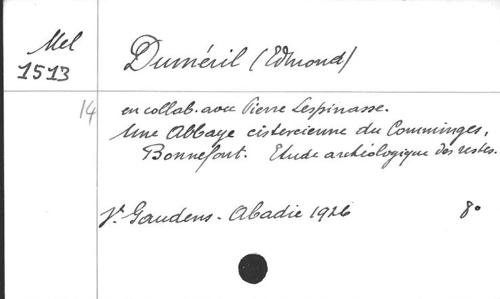 Mel
1513
Duméril (Edmond)
14
en collab. avec Pierre Lespinasse.
Une Abbaye cistercienne du Comminges,
Bonnefont. Etude archéologique des restes.
St Gaudens - Abadie 1926 8°